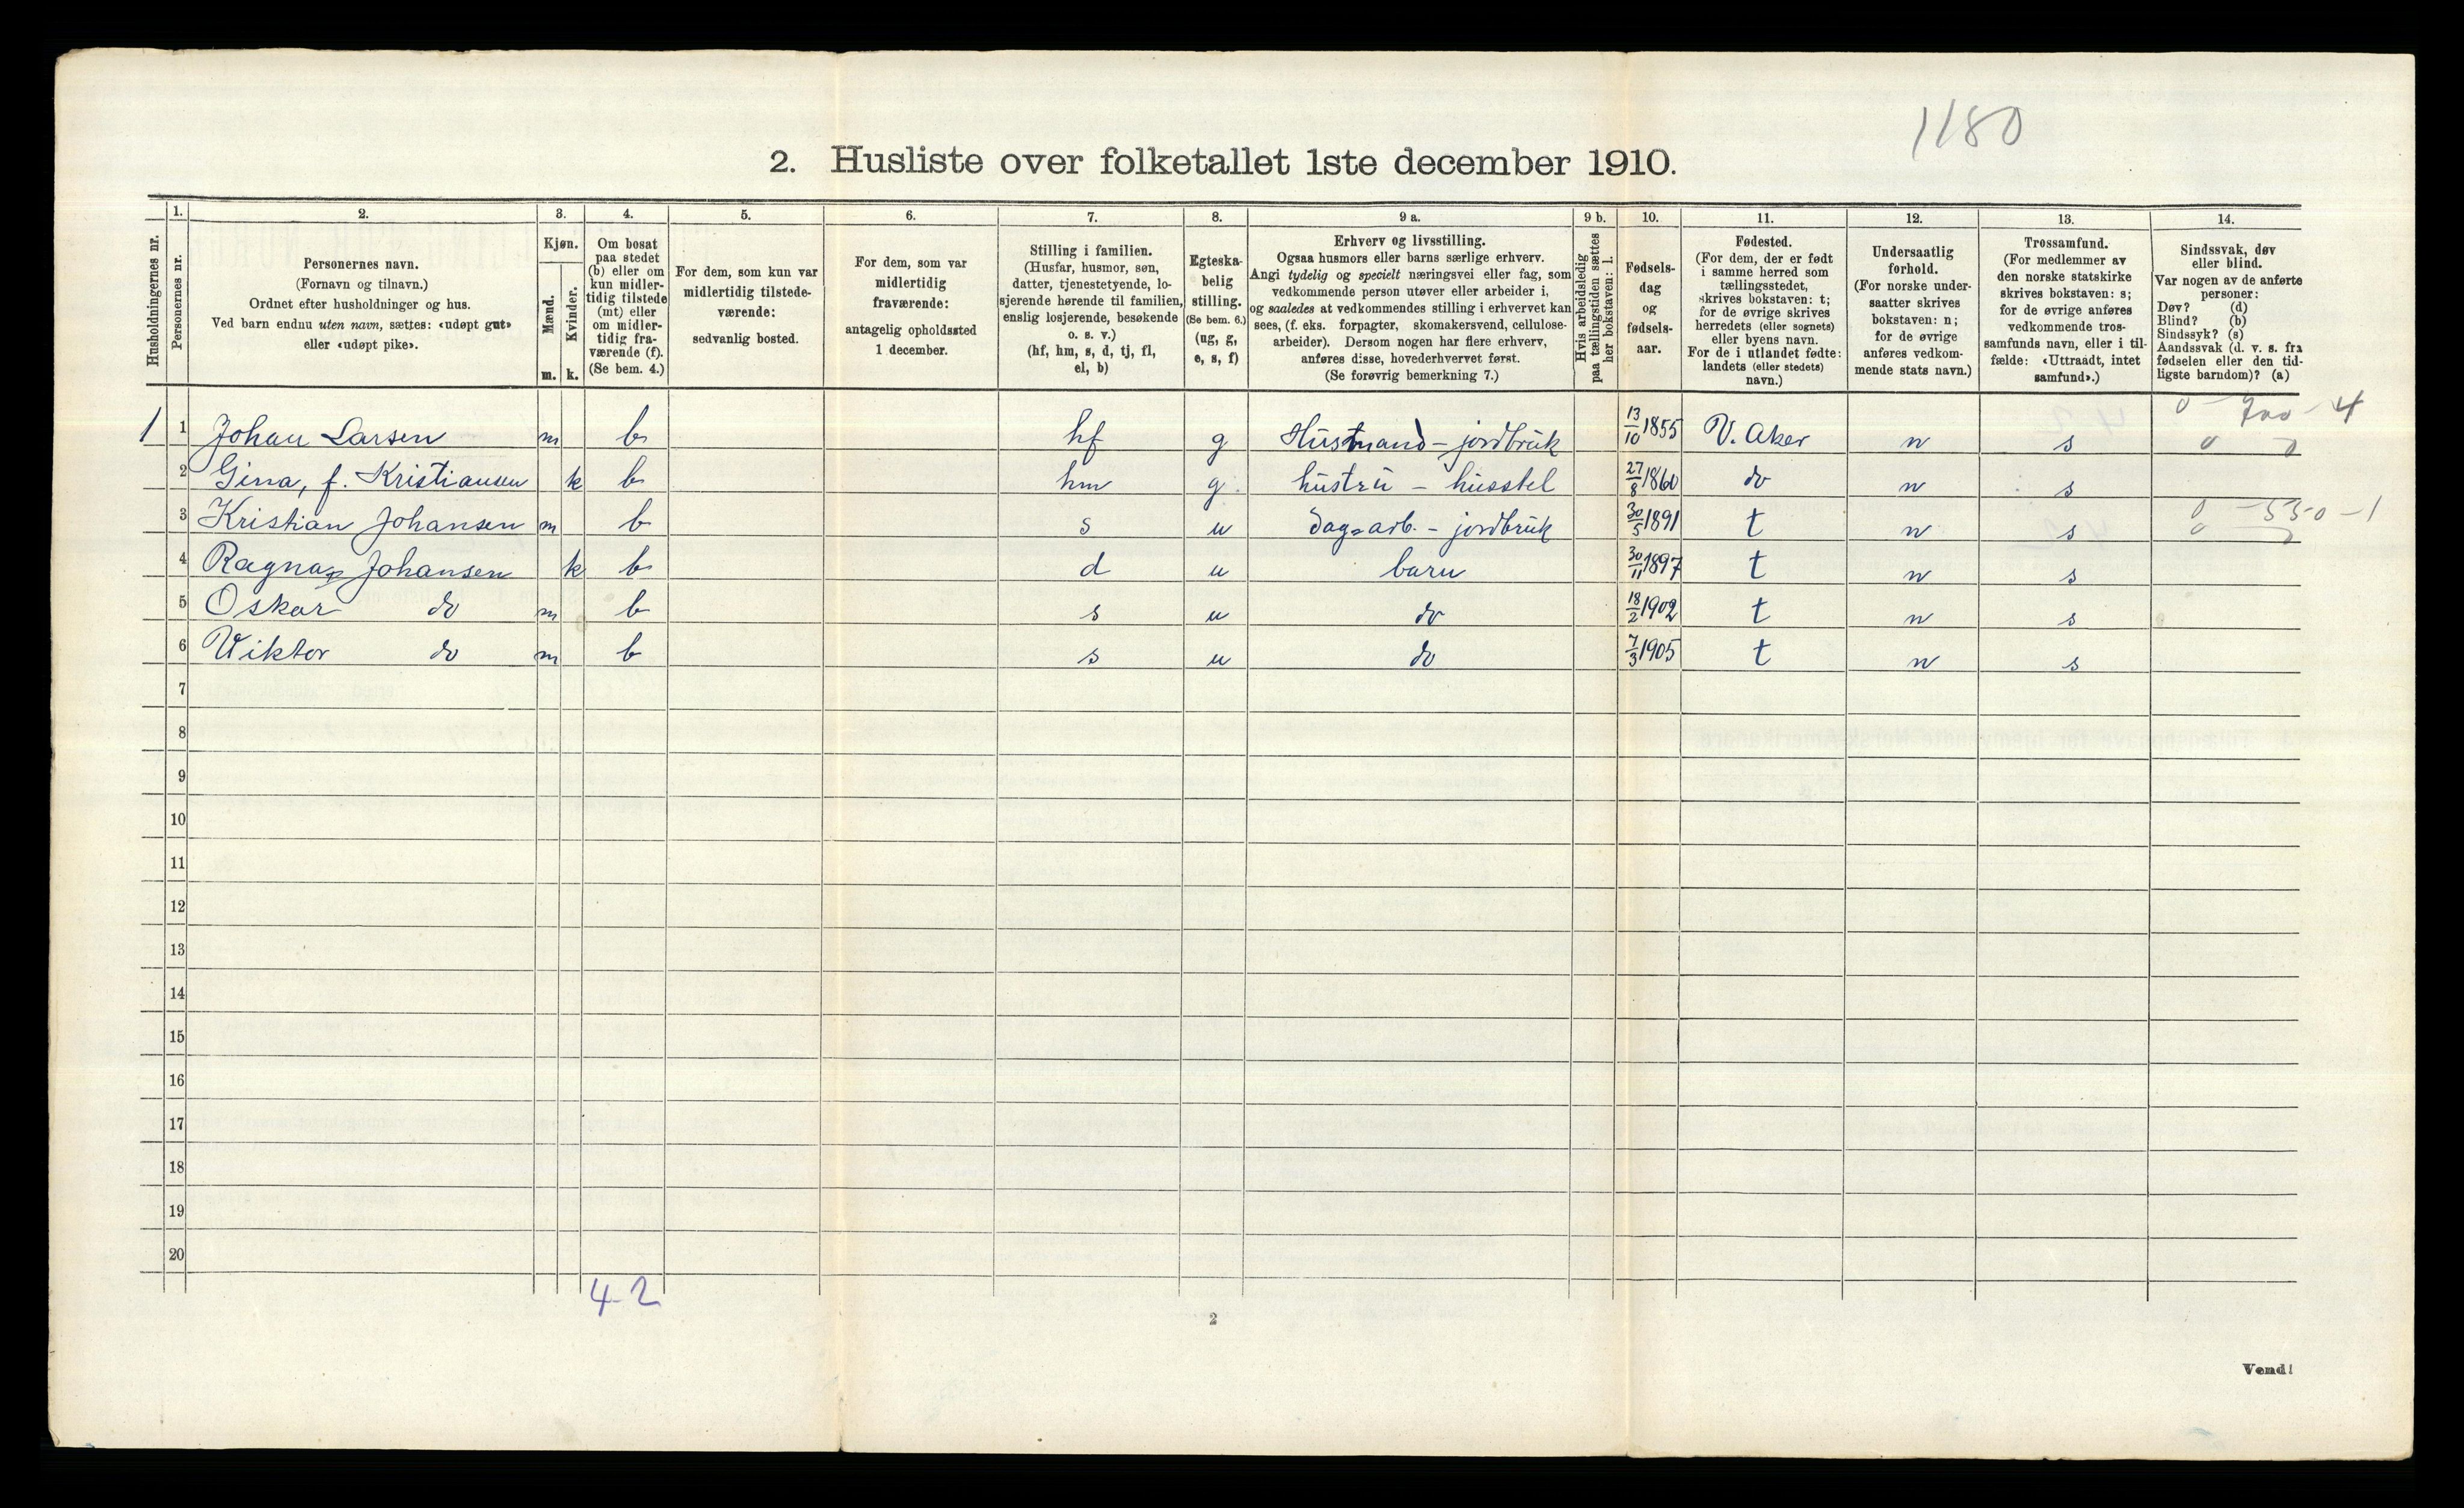 1180
2. Husliste over folketallet 1ste december 1910.
Husholdningernes nr.
1.
Personernes nr.
2.
Personernes navn.
(Fornavn og tilnavn.)
Ordnet efter husholdninger og hus.
Ved barn endnu uten navn, sættes: «udøpt gut»
eller «udøpt pike».
3.
Kjøn.
Mænd.
m.
Kvinder.
k.
4.
Om bosat
paa stedet
(b) eller om
kun midler-
tidig tilstede
(mt) eller
om midler-
tidig fra-
værende (f).
(Se bem. 4.)
5.
For dem, som kun var
midlertidig tilstede-
værende:
sedvanlig bosted.
6.
For dem, som var
midlertidig
fraværende:
antagelig opholdssted
1 december.
7.
Stilling i familien.
(Husfar, husmor, søn,
datter, tjenestetyende, lo-
sjerende hørende til familien,
enslig losjerende, besøkende
o. s. v.)
(hf, hm, s, d, tj, fl,
el, b)
8.
Egteska-
belig
stilling.
(Se bem. 6.)
(ug, g,
e, s, f)
9 a.
Erhverv og livsstilling.
Ogsaa husmors eller barns særlige erhverv.
Angi tydelig og specielt næringsvei eller fag, som
vedkommende person utøver eller arbeider i,
og saaledes at vedkommendes stilling i erhvervet kan
sees, (f. eks. forpagter, skomakersvend, cellulose-
arbeider). Dersom nogen har flere erhverv,
anføres disse, hovederhvervet først.
(Se forøvrig bemerkning 7.)
9 b.
Hvis arbeidsledig
paa tællingstiden sættes
her bokstaven: l.
10.
Fødsels-
dag
og
fødsels-
aar.
11.
Fødested.
(For dem, der er født
i samme herred som
tællingsstedet,
skrives bokstaven: t;
for de øvrige skrives
herredets (eller sognets)
eller byens navn.
For de i utlandet fødte:
landets (eller stedets)
navn.)
12.
Undersaatlig
forhold.
(For norske under-
saatter skrives
bokstaven: n;
for de øvrige
anføres vedkom-
mende stats navn.)
13.
Trossamfund.
(For medlemmer av
den norske statskirke
skrives bokstaven: s;
for de øvrige anføres
vedkommende tros-
samfunds navn, eller i til-
fælde: «Uttraadt, intet
samfund».)
14.
Sindssvak, døv
eller blind.
Var nogen av de anførte
personer:
Døv? (d)
Blind? (b)
Sindssyk? (s)
Aandssvak (d. v. s. fra
fødselen eller den tid-
ligste barndom)? (a)
0 - 700 - 4
1 1 Johan Larsen m b hf g Husmand - jordbruk 13/10 1855 V. Aker n s 0 0
2 Gina, f. Kristiansen k b hm g hustru - husstel 27/8 1860 do n s
3 Kristian Johansen m b s u dag.arb. - jordbruk 30/5 1891 t n s 0 - 550 - 1
4 Ragna Johansen k b d u barn 30/11 1897 t n s
5 Oskar do m b s u do 18/2 1902 t n s
6 Viktor do m b s u do 7/3 1905 t n s
7
8
9
10
11
12
13
14
15
16
17
18
19
20
4-2
2
Vend!